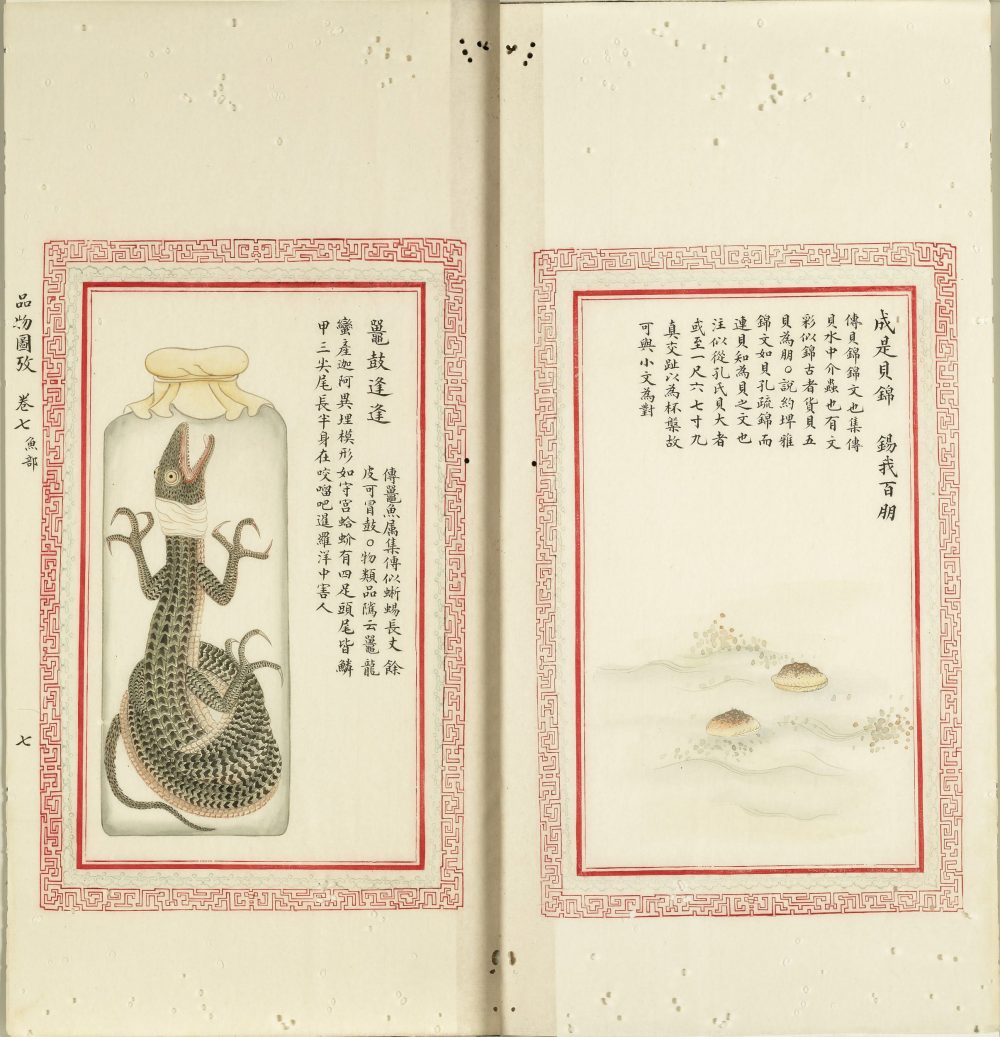 成是貝錦　錫我百朋
傳貝錦錦文也集傳
貝水中介蟲也有文
彩似錦古者貨貝五
貝為朋○說約埤雅
錦文如貝孔疏錦而
連貝知為貝之文也
注似從孔氏貝大者
或至一尺六七寸九
真交趾以為杯槃故
可與小文為對
鼉鼓逢逢
傳鼉魚属集傳似蜥蜴長丈餘
皮可冒鼓○物類品隲云鼉龍
蠻產迦阿異埋模形如守宮蛤蚧有四足頭尾皆鱗
甲三尖尾長半身在咬𠺕吧暹羅洋中害人
品物圖攷　卷七　魚部　七